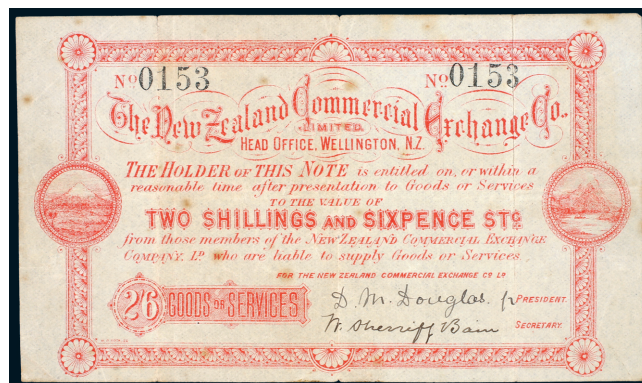 No 0153 No 0153
The New Zealand Commercial Exchange Co.,
LIMITED.
HEAD OFFICE, WELLINGTON, N.Z.
THE HOLDER OF THIS NOTE is entitled on, or within a
reasonable time after presentation to Goods or Services
TO THE VALUE OF
TWO SHILLINGS AND SIXPENCE STG
from those members of the NEW ZEALAND COMMERCIAL EXCHANGE
COMPANY, LD who are liable to supply Goods or Services.
FOR THE NEW ZEALAND COMMERCIAL EXCHANGE CO LD
2/6 GOODS OR SERVICES
D. M. Douglas. PRESIDENT.
W. Sherriff Bain SECRETARY.